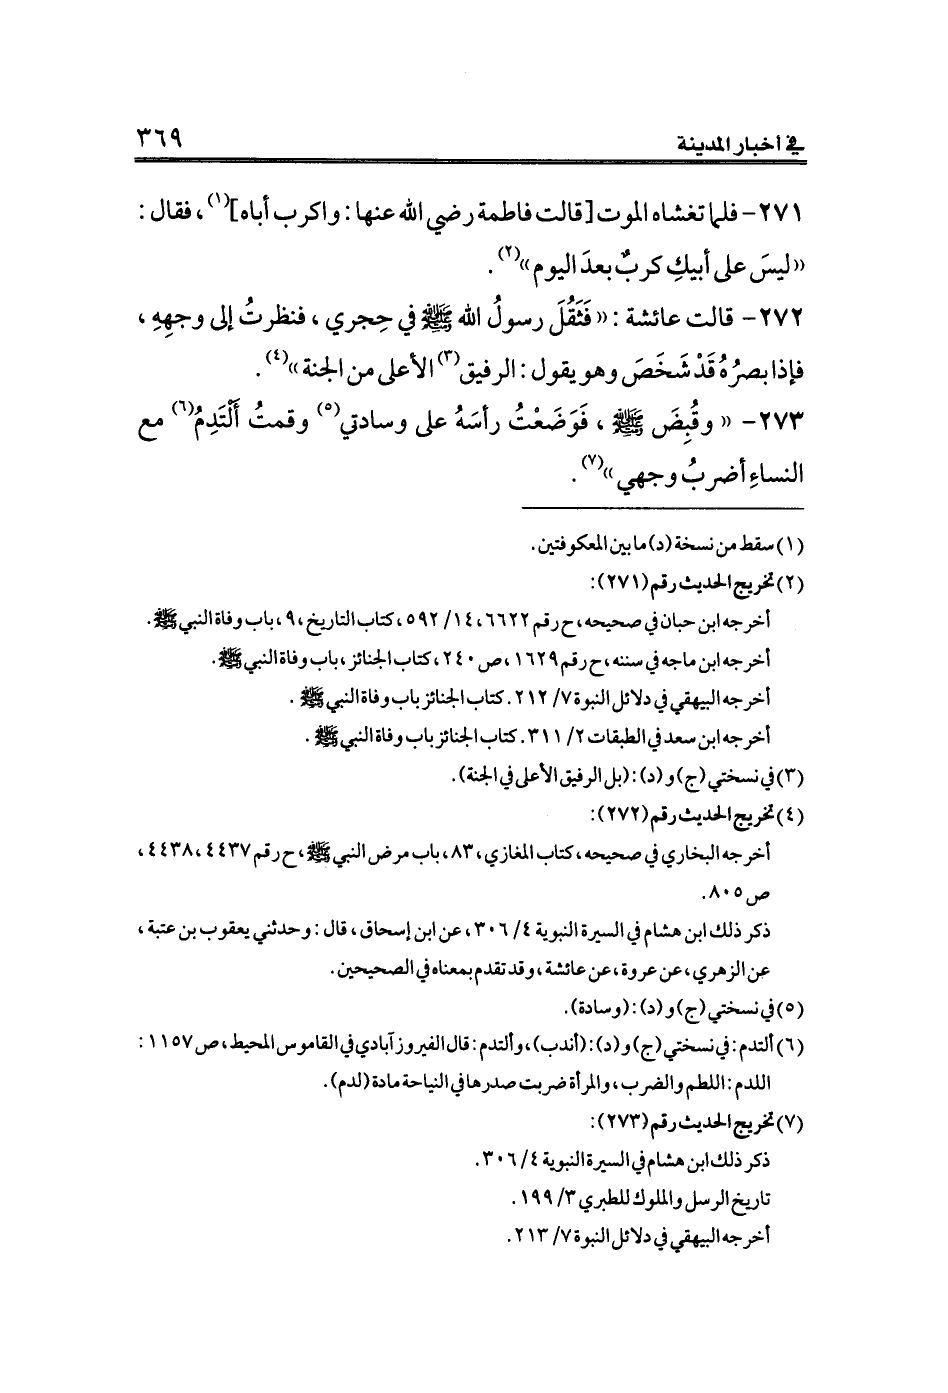 في أخبار المدينة ٣٦٩
٢٧١- فلما تغشاه الموت [قالت فاطمة رضي الله عنها: واكرب أباه](١)، فقال:
«ليسَ على أبيكِ كربٌ بعدَ اليوم»(٢).
٢٧٢- قالت عائشة: «فَثَقُلَ رسولُ الله ﷺ في حِجري، فنظرتُ إلى وجهِهِ،
فإذا بصرُهُ قَدْ شَخَصَ وهو يقول: الرفيق(٣) الأعلى من الجنة»(٤).
٢٧٣- «وقُبِضَ ﷺ، فَوَضَعْتُ رأسَهُ على وسادتي(٥) وقمتُ أَلْتَدِمُ(٦) مع
النساءِ أضربُ وجهي»(٧).
(١) سقط من نسخة (د) ما بين المعكوفتين.
(٢) تخريج الحديث رقم (٢٧١):
أخرجه ابن حبان في صحيحه، ح رقم ٦٦٢٢، ١٤/ ٥٩٢، كتاب التاريخ، ٩، باب وفاة النبي ﷺ.
أخرجه ابن ماجه في سننه، ح رقم ١٦٢٩، ص ٢٤٠، كتاب الجنائز، باب وفاة النبي ﷺ.
أخرجه البيهقي في دلائل النبوة ٧/ ٢١٢. كتاب الجنائز باب وفاة النبي ﷺ.
أخرجه ابن سعد في الطبقات ٢/ ٣١١. كتاب الجنائز باب وفاة النبي ﷺ.
(٣) في نسختي (ج) و (د): (بل الرفيق الأعلى في الجنة).
(٤) تخريج الحديث رقم (٢٧٢):
أخرجه البخاري في صحيحه، كتاب المغازي، ٨٣، باب مرض النبي ﷺ، ح رقم ٤٤٣٧، ٤٤٣٨،
ص ٨٠٥.
ذكر ذلك ابن هشام في السيرة النبوية ٤/ ٣٠٦، عن ابن إسحاق، قال: وحدثني يعقوب بن عتبة،
عن الزهري، عن عروة، عن عائشة، وقد تقدم بمعناه في الصحيحين.
(٥) في نسختي (ج) و (د): (وسادة).
(٦) ألتدم: في نسختي (ج) و (د): (أندب)، وألتدم: قال الفيروزآبادي في القاموس المحيط، ص ١١٥٧:
اللدم: اللطم والضرب، والمرأة ضربت صدرها في النياحة مادة (لدم).
(٧) تخريج الحديث رقم (٢٧٣):
ذكر ذلك ابن هشام في السيرة النبوية ٤/ ٣٠٦.
تاريخ الرسل والملوك للطبري ٣/ ١٩٩.
أخرجه البيهقي في دلائل النبوة ٧/ ٢١٣.